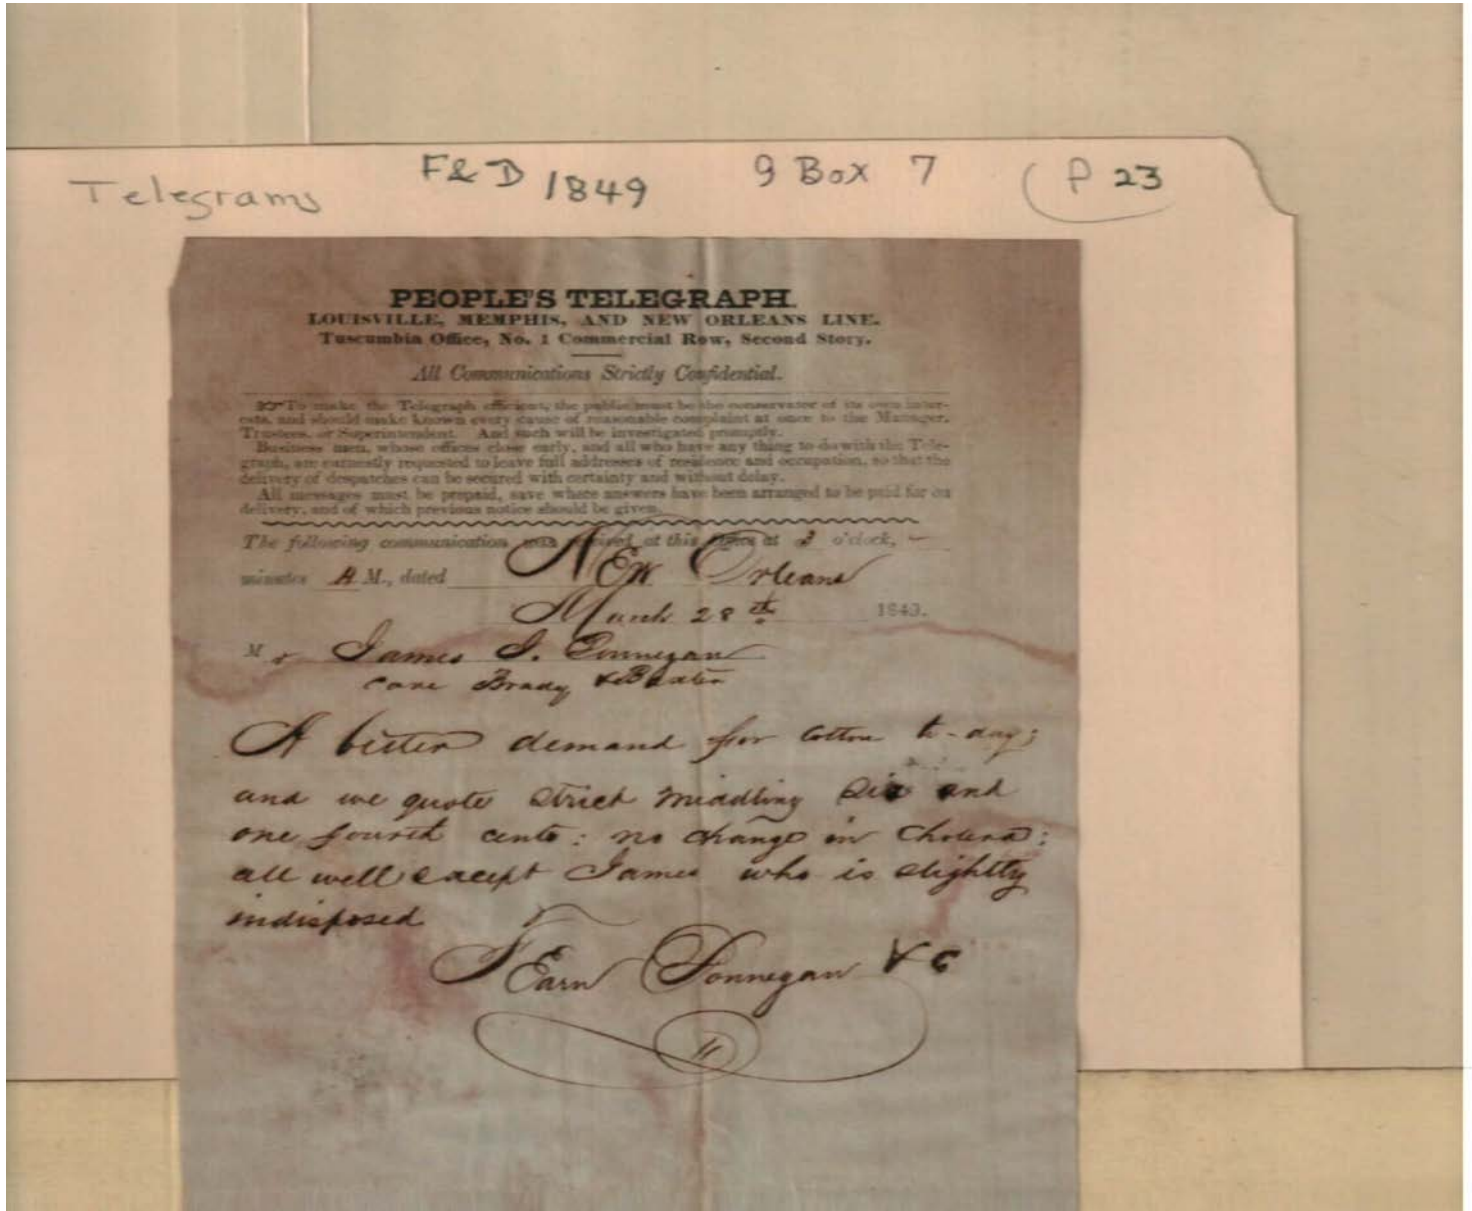 Telegrams F&D 1849 9 Box 7 P 23
PEOPLE'S TELEGRAPH.
LOUISVILLE, MEMPHIS, AND NEW ORLEANS LINE.
Tuscumbia Office, No. 1 Commercial Row, Second Story.
All Communications Strictly Confidential.
☞To make the Telegraph efficient, the public must be the conservator of its own inter-
ests, and should make known every cause of reasonable complaint at once to the Manager,
Trustees, or Superintendent. And such will be investigated promptly.
Business men, whose offices close early, and all who have any thing to do with the Tele-
graph, are earnestly requested to leave full addresses of residence and occupation, so that the
delivery of despatches can be secured with certainty and without delay.
All messages must be prepaid, save where answers have been arranged to be paid for on
delivery, and of which previous notice should be given.
The following communication was received at this office at 3 o'clock, –
minutes A M., dated New Orleans
March 28th 1849.
Mr James J. Donnegan
care Brady & Baxter
A better demand for Cotton to-day;
and we quote strict middling six and
one fourth cents: no change in Cholera:
all well except James who is slightly
indisposed
Fearn Donnegan & C